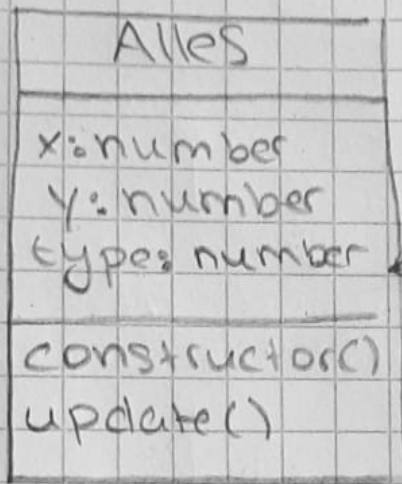 Alles
x: number
y: number
type: number
constructor()
update()